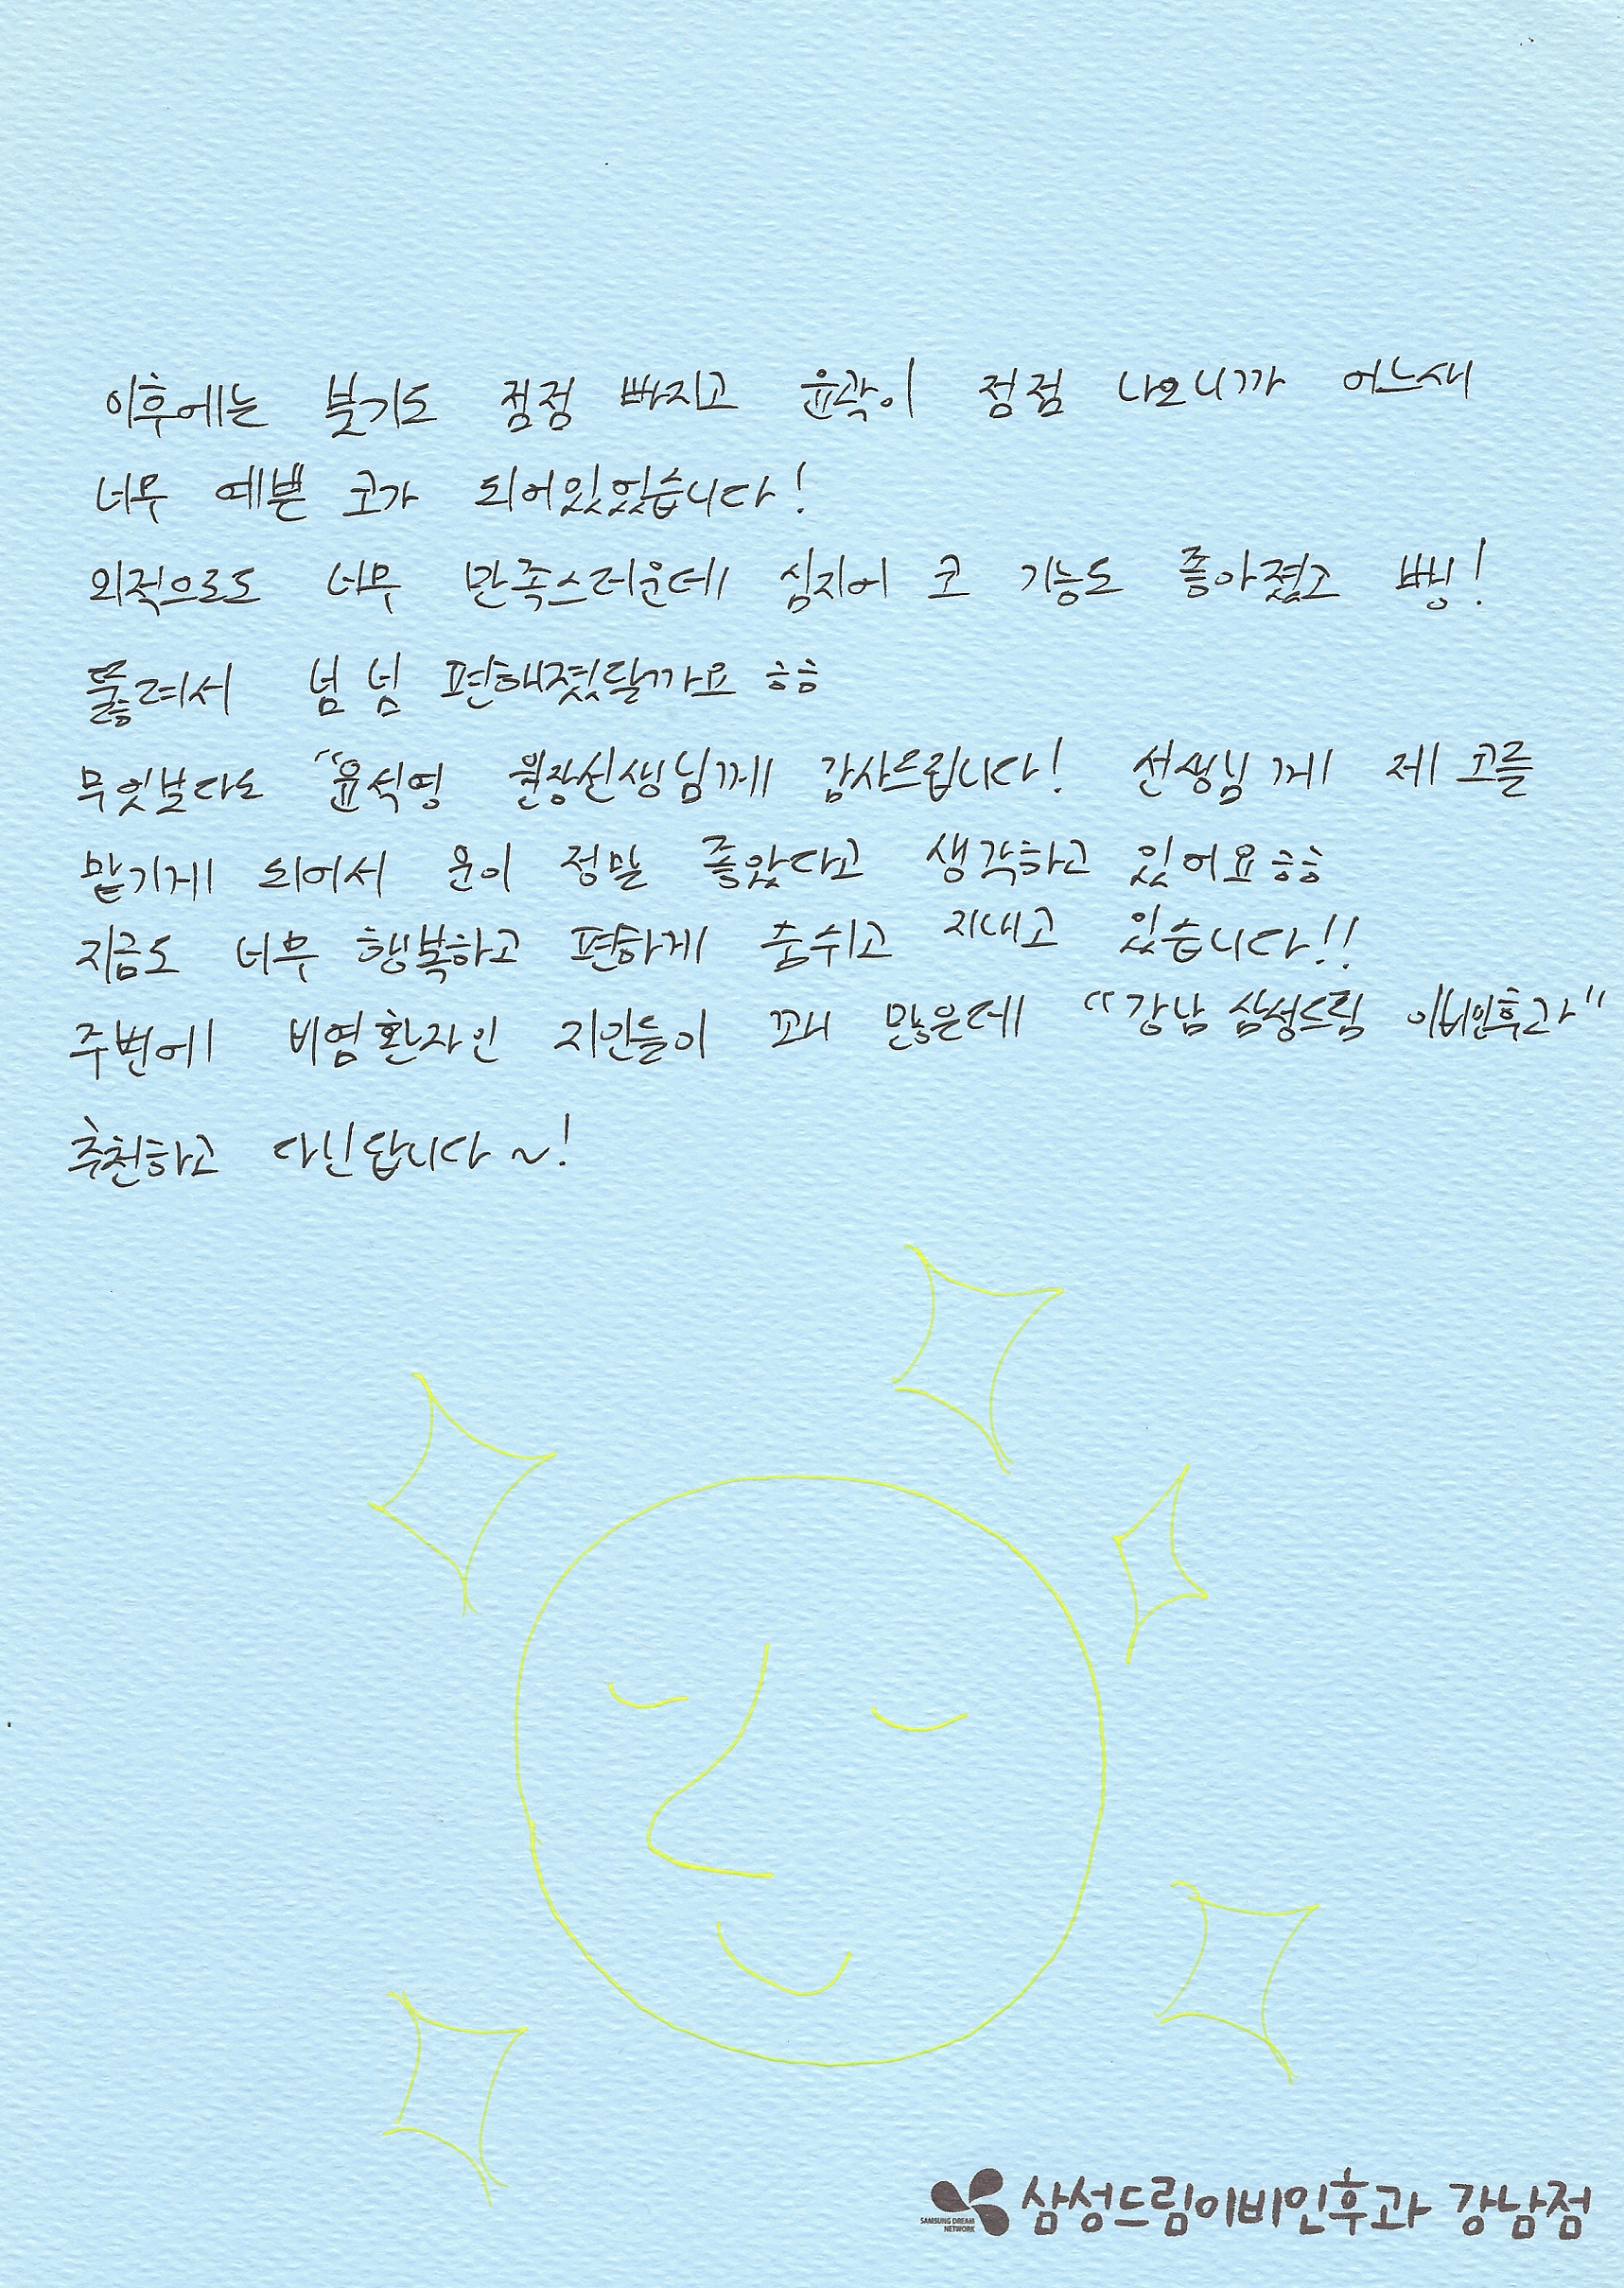 이후에는 붓기도 점점 빠지고 윤곽이 점점 나오니까 어느새
너무 예쁜 코가 되어있었습니다!
외적으로도 너무 만족스러운데 심지어 코 기능도 좋아졌고 뻥!
뚫려서 넘 넘 편해졌달까요 ㅎㅎ
무엇보다도 "윤석영 원장선생님께 감사드립니다! 선생님께 제 코를
맡기게 되어서 운이 정말 좋았다고 생각하고 있어요 ㅎㅎ
지금도 너무 행복하고 편하게 숨쉬고 지내고 있습니다!!
주변에 비염환자인 지인들이 꽤 많은데 "강남 삼성드림 이비인후과"
추천하고 다닌답니다~!
SAMSUNG DREAM
NETWORK
삼성드림이비인후과 강남점